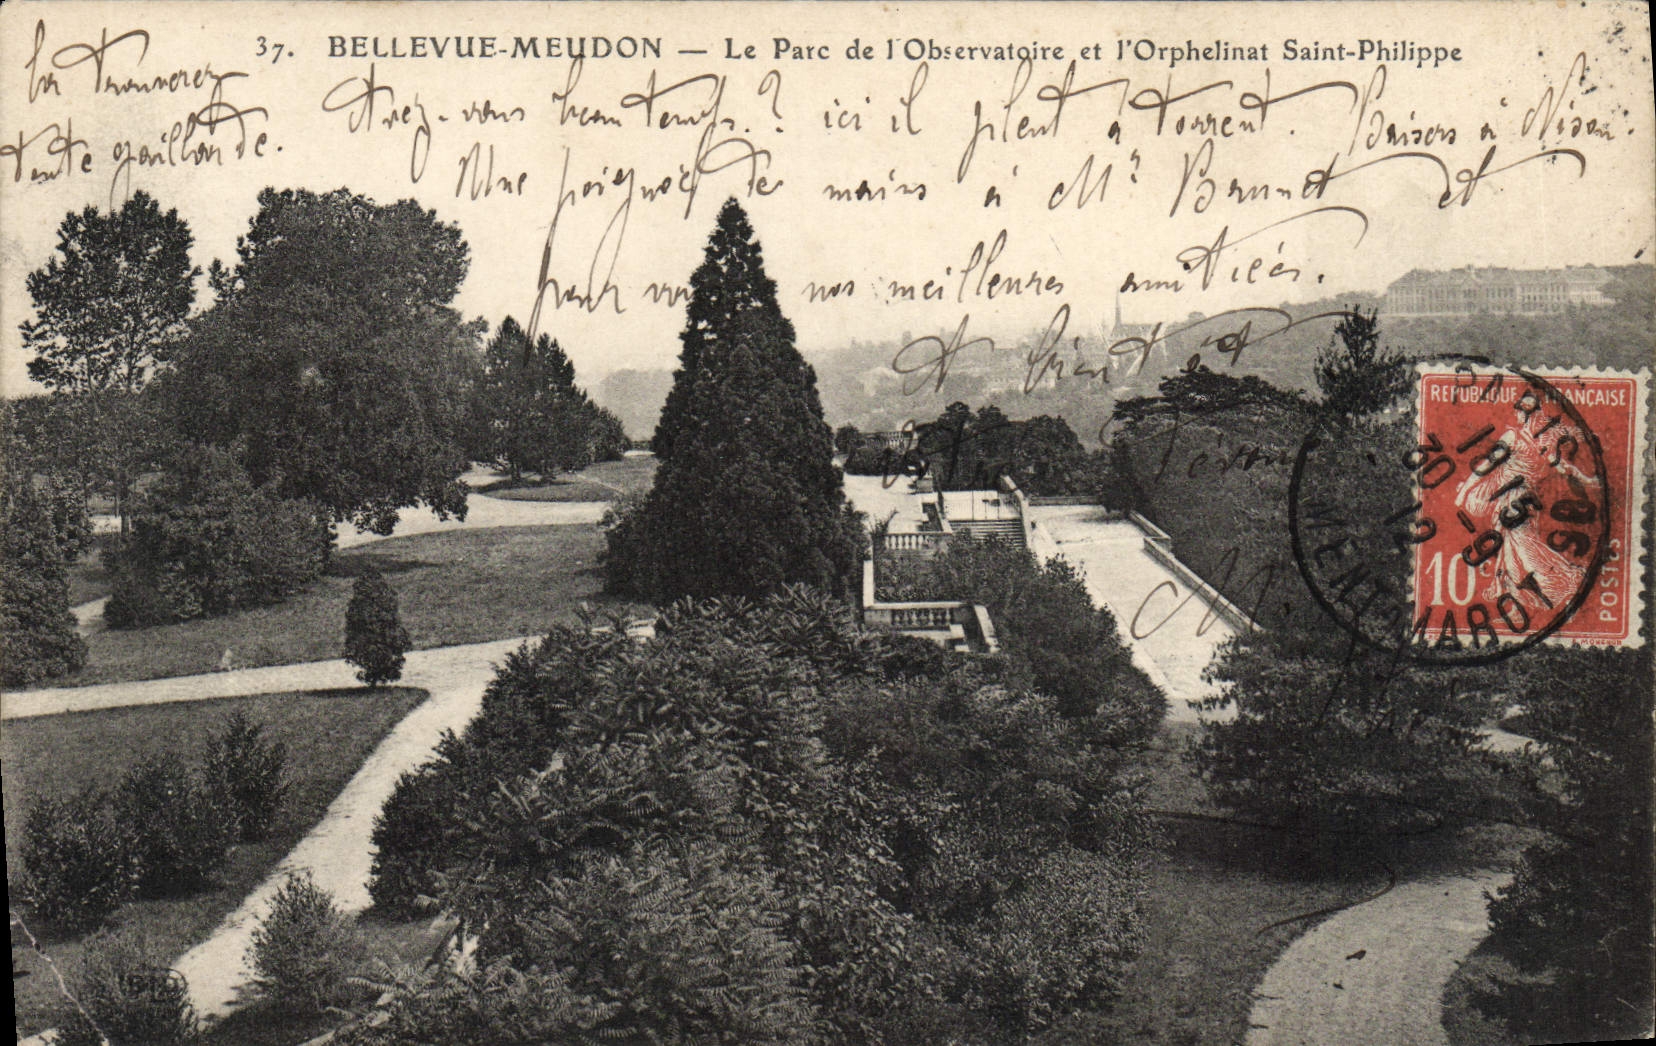 37. BELLEVUE-MEUDON — Le Parc de l'Observatoire et l'Orphelinat Saint-Philippe
la trouverez
toute gaillarde.
Avez-vous beau temps ? ici il pleut à torrent. Baisers à Nison.
Une poignée de mains à Mr Brunet et
pour vous nos meilleures amitiés.
A bientôt
M.
REPUBLIQUE FRANÇAISE
10c
POSTES
PARIS
18 15
30 -9
12
MENT MAROT
ELD